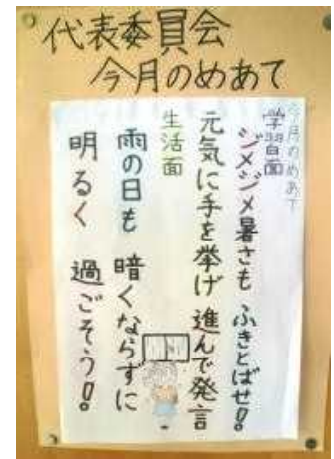 代表委員会
今月のめあて
今月のめあて
学習面
ジメジメ暑さも ふきとばせ!!
元気に手を挙げ 進んで発言
生活面
雨の日も 暗くならずに
明るく 過ごそう!!